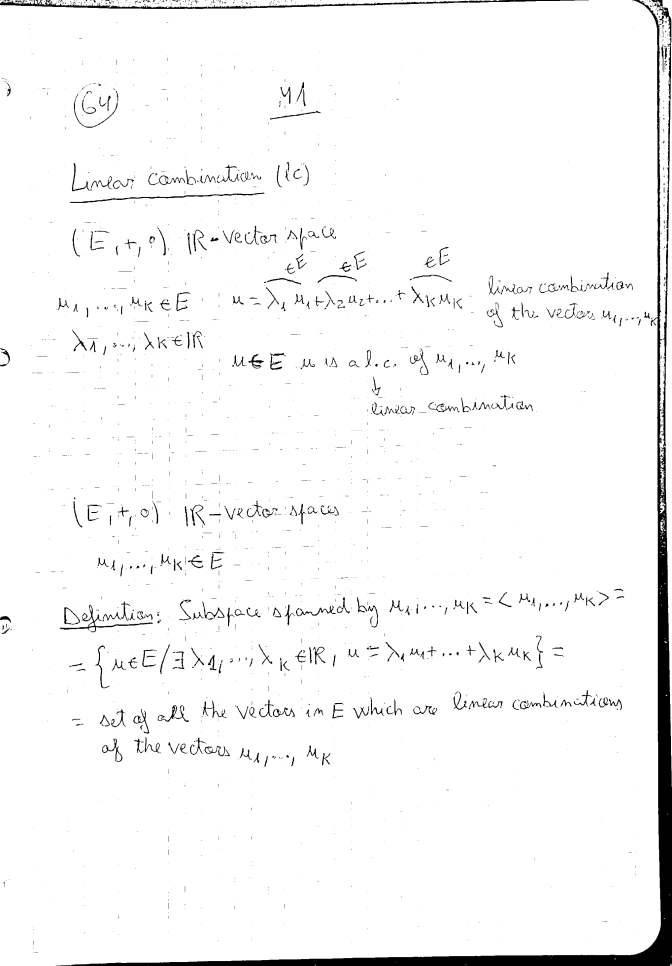 64 M1
Linear combination (lc)
(E, +, ∘) ℝ-vector space
∈E ∈E ∈E
u1, ..., uK ∈ E u = λ1 u1 + λ2 u2 + ... + λK uK linear combination
of the vectors u1, ..., uK
λ1, ..., λK ∈ ℝ
u ∈ E u is a l.c. of u1, ..., uK
↓
linear combination
(E, +, ∘) ℝ-vector spaces
u1, ..., uK ∈ E
Definition: Subspace spanned by u1, ..., uK = < u1, ..., uK > =
= {u ∈ E / ∃ λ1, ..., λK ∈ ℝ, u = λ1 u1 + ... + λK uK} =
= set of all the vectors in E which are linear combinations
of the vectors u1, ..., uK